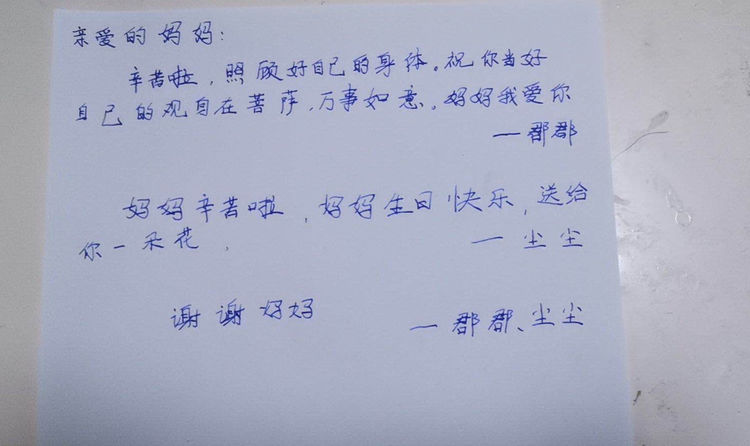 亲爱的妈妈:
辛苦啦,照顾好自己的身体。祝你当好
自己的观自在菩萨,万事如意。妈妈我爱你
—郡郡
妈妈辛苦啦,妈妈生日快乐,送给
你一朵花,
—尘尘
谢谢妈妈
—郡郡、尘尘